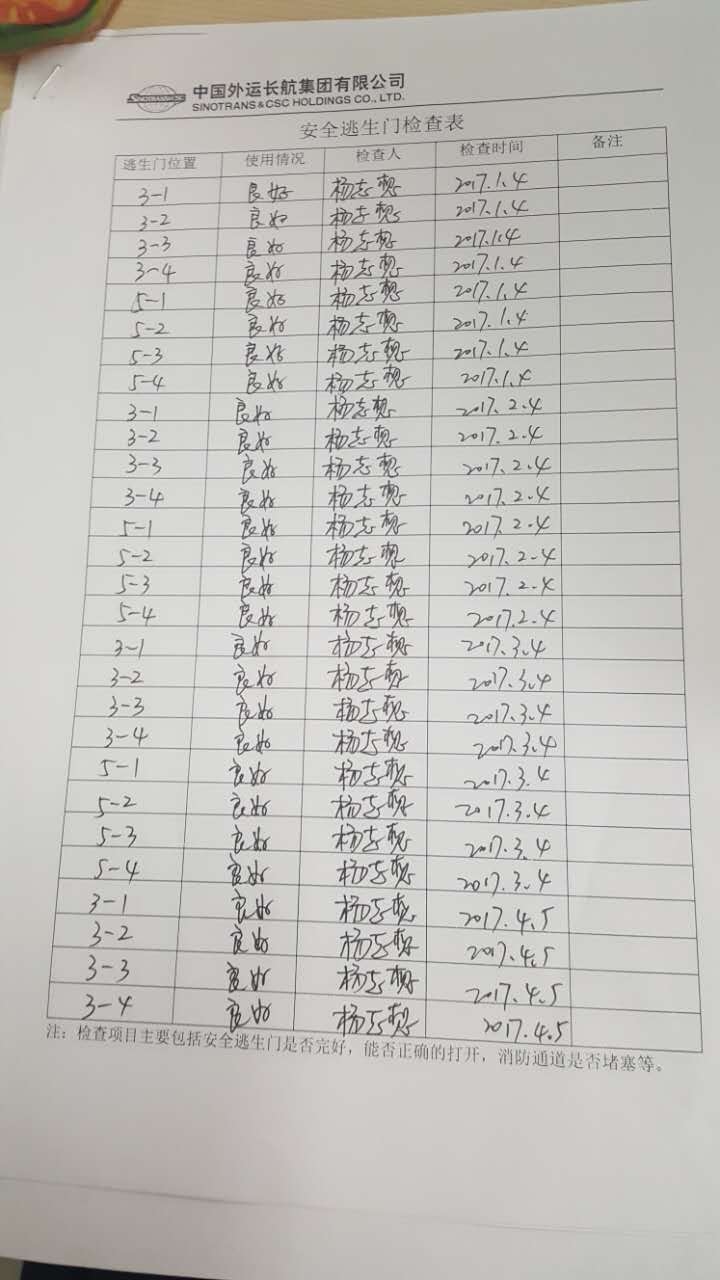 中国外运长航集团有限公司
SINOTRANS & CSC HOLDINGS CO., LTD.
安全逃生门检查表
逃生门位置 使用情况 检查人 检查时间 备注
3-1 良好 杨志 2017.1.4
3-2 良好 杨志 2017.1.4
3-3 良好 杨志 2017.1.4
3-4 良好 杨志 2017.1.4
5-1 良好 杨志 2017.1.4
5-2 良好 杨志 2017.1.4
5-3 良好 杨志 2017.1.4
5-4 良好 杨志 2017.1.4
3-1 良好 杨志 2017.2.4
3-2 良好 杨志 2017.2.4
3-3 良好 杨志 2017.2.4
3-4 良好 杨志 2017.2.4
5-1 良好 杨志 2017.2.4
5-2 良好 杨志 2017.2.4
5-3 良好 杨志 2017.2.4
5-4 良好 杨志 2017.2.4
3-1 良好 杨志 2017.3.4
3-2 良好 杨志 2017.3.4
3-3 良好 杨志 2017.3.4
3-4 良好 杨志 2017.3.4
5-1 良好 杨志 2017.3.4
5-2 良好 杨志 2017.3.4
5-3 良好 杨志 2017.3.4
5-4 良好 杨志 2017.3.4
3-1 良好 杨志 2017.4.5
3-2 良好 杨志 2017.4.5
3-3 良好 杨志 2017.4.5
3-4 良好 杨志 2017.4.5
注：检查项目主要包括安全逃生门是否完好，能否正确的打开，消防通道是否堵塞等。